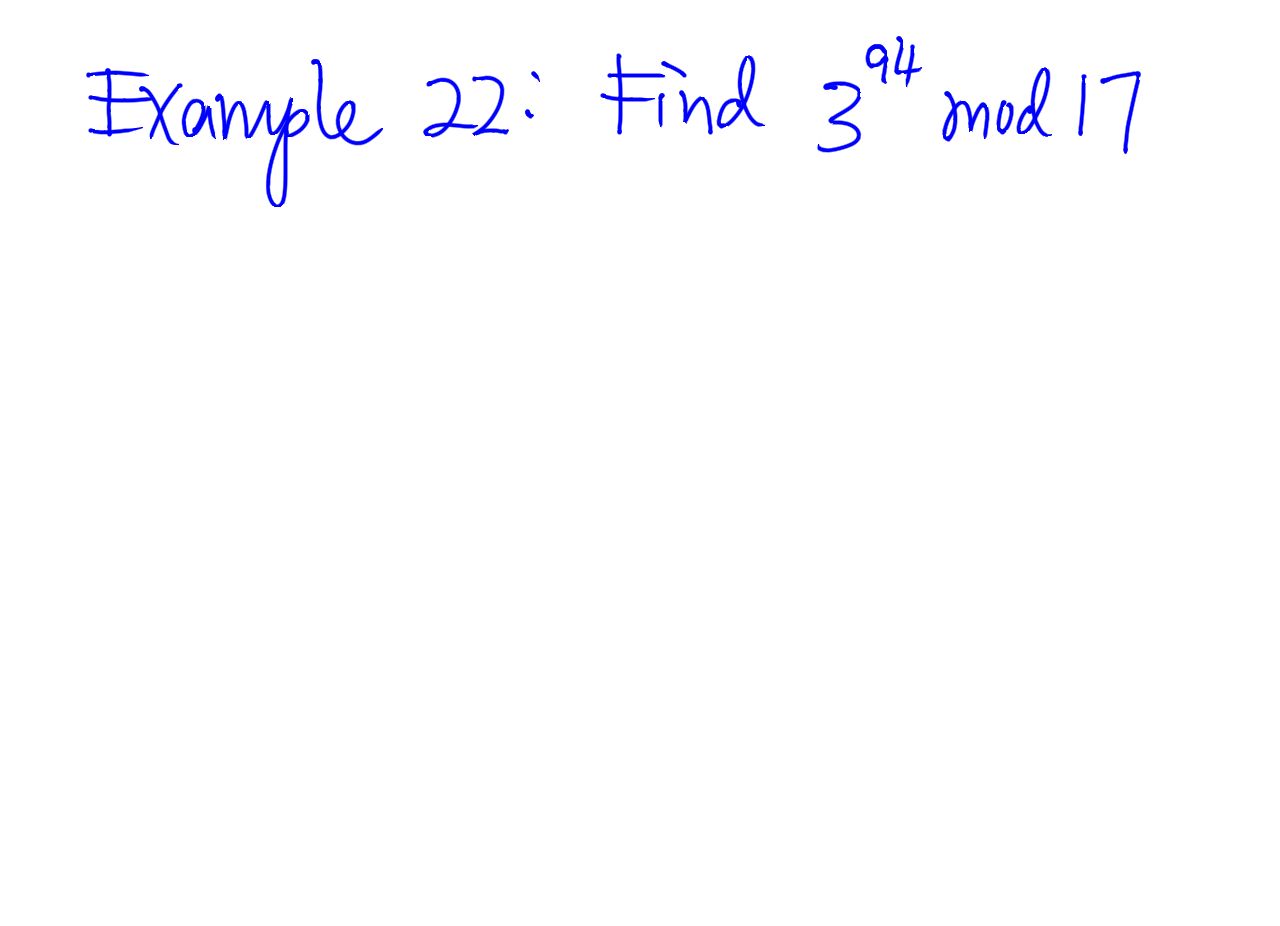 Example 22: Find 3^94 mod 17